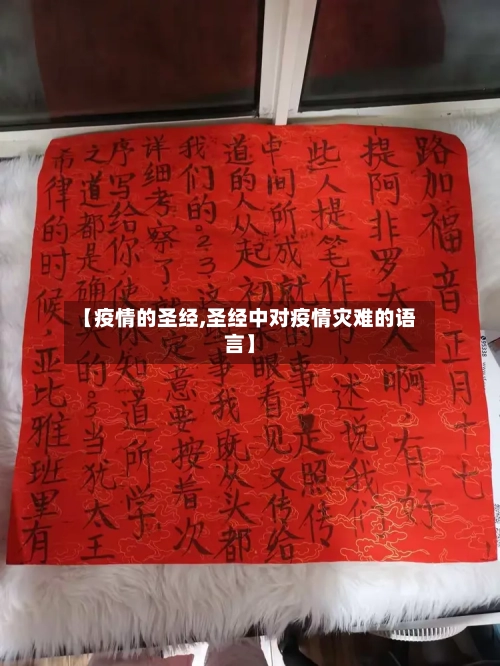 【疫情的圣经,圣经中对疫情灾难的语
言】
路加福音正月十七
提阿非罗大人啊,有好
些人提笔作书,述说我们
中间所成就的事,是照传
道的人从起初眼看见又传给
我们的。2 3 这事我既从头都
详细考察了定意要按着次
序写给你使你知道所学
之道都是确的。5 当犹太王
希律的时候,亚比雅班里有